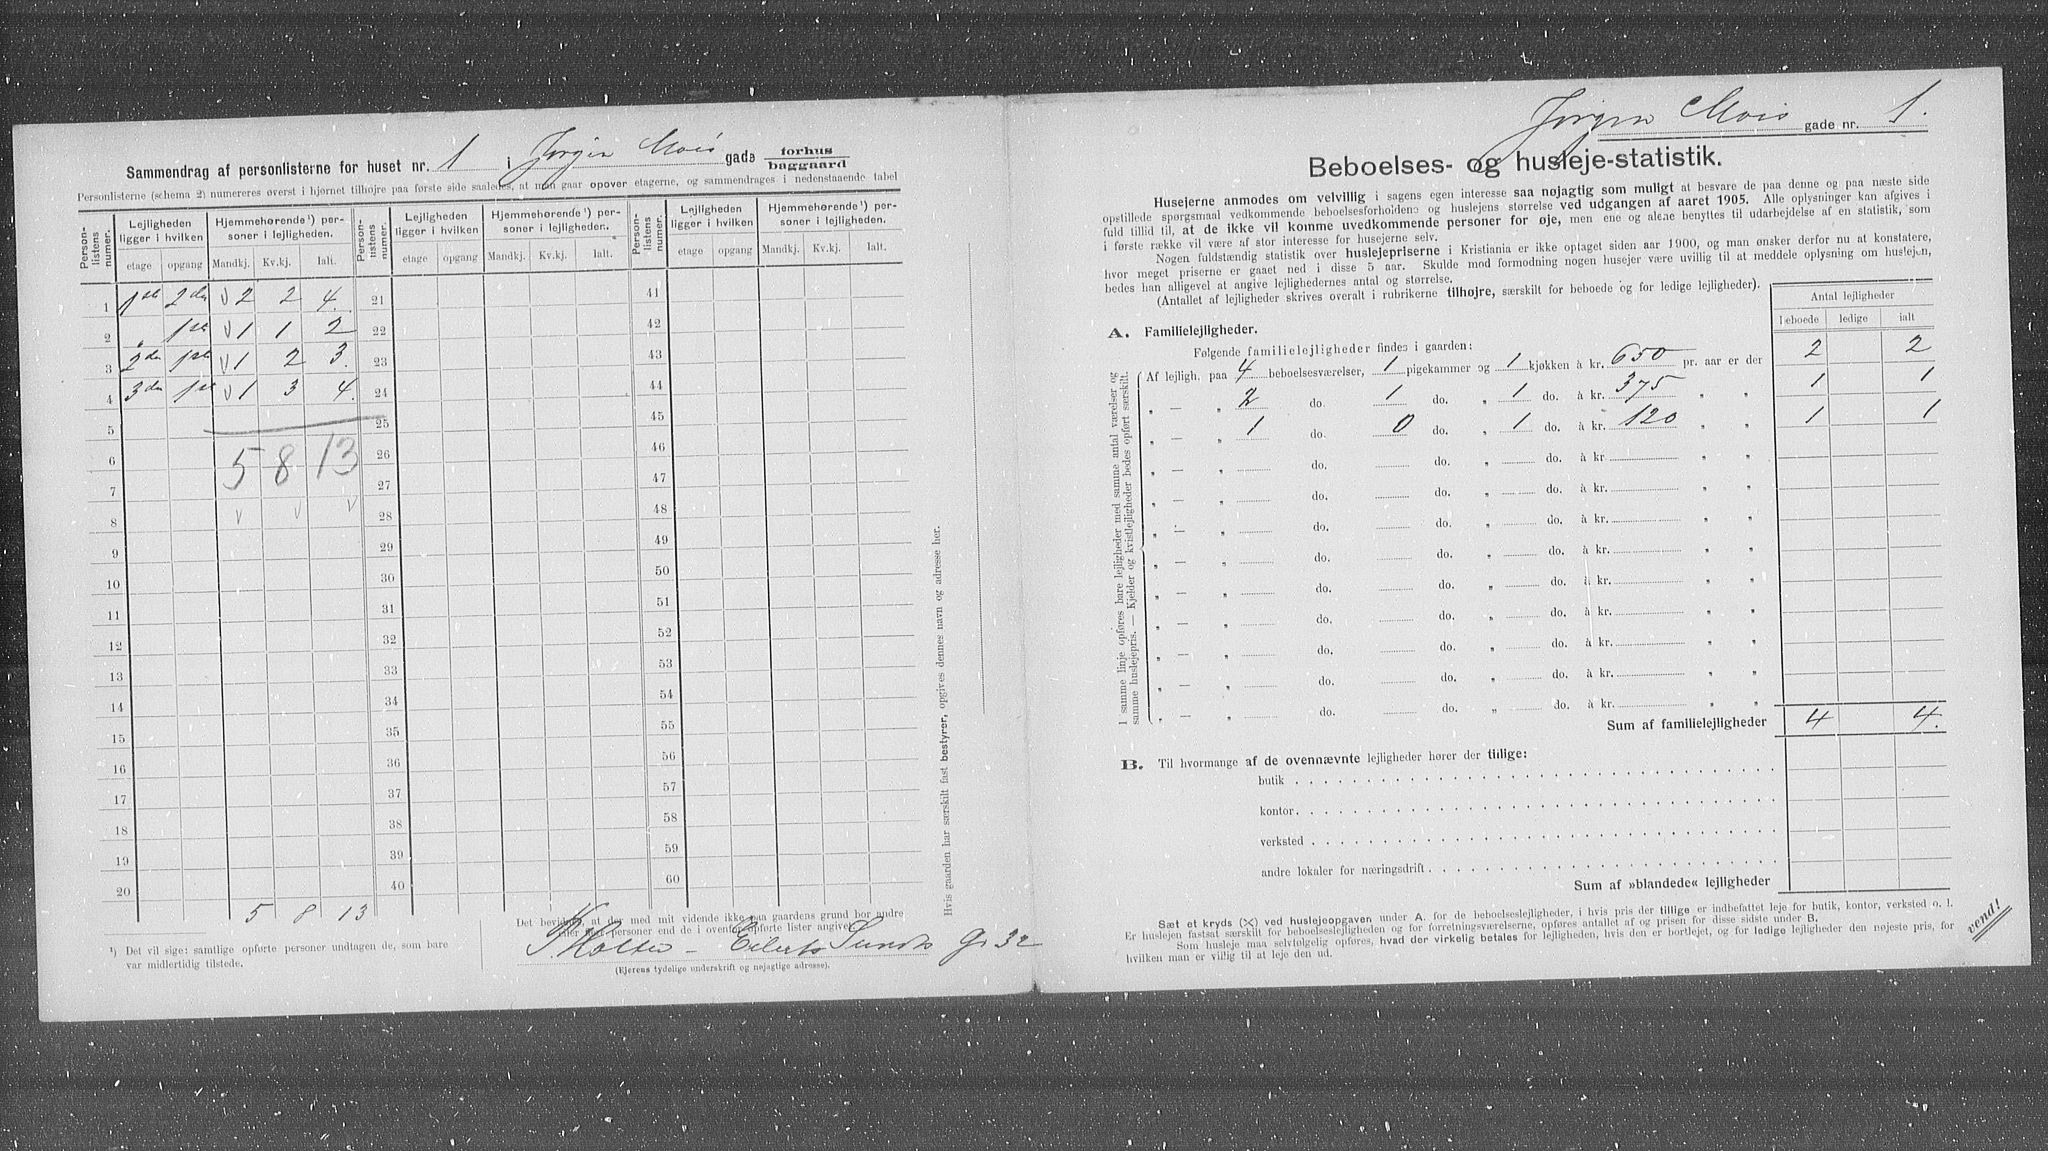 Sammendrag af personlisterne for huset nr. 1 i Jørgen Mois gade forhus
baggaard
Personlisterne (schema 2) numereres øverst i hjørnet tilhøjre paa første side saaledes, at man gaar opover etagerne, og sammendrages i nedenstaaende tabel
Person-listens numer. Lejligheden ligger i hvilken Hjemmehørende ¹) per-soner i lejligheden. Person-listens numer. Lejligheden ligger i hvilken Hjemmehørende ¹) per-soner i lejligheden. Person-listens numer. Lejligheden ligger i hvilken Hjemmehørende ¹) per-soner i lejligheden.
etage opgang Mandkj. Kv.kj. Ialt. etage opgang Mandkj. Kv.kj. Ialt. etage opgang Mandkj. Kv.kj. Ialt.
1 1ste 2den v 2 2 4. 21 41
2 „ 1ste v 1 1 2 22 42
3 2den 1ste v 1 2 3. 23 43
4 3den 1ste v 1 3 4. 24 44
5 25 45
6 5 8 13 26 46
7 27 47
8 v v v 28 48
9 29 49
10 30 50
11 31 51
12 32 52
13 33 53
14 34 54
15 35 55
16 36 56
17 37 57
18 38 58
19 39 59
20 40 60
5 8 13
¹) Det vil sige: samtlige opførte personer undtagen de, som bare
var midlertidig tilstede.
Det bevidnes, at der med mit vidende ikke paa gaardens grund bor andre
eller flere personer end de i ovenfor opførte lister angivne.
P. Holter - Eilert Sundts G. 32
(Ejerens tydelige underskrift og nøjagtige adresse).
Hvis gaarden har særskilt fast bestyrer, opgives dennes navn og adresse her.
Jørgen Mois gade nr. 1.
Beboelses- og husleje-statistik.
Husejerne anmodes om velvillig i sagens egen interesse saa nøjagtig som muligt at besvare de paa denne og paa næste side
opstillede spørgsmaal vedkommende beboelsesforholdene og huslejens størrelse ved udgangen af aaret 1905. Alle oplysninger kan afgives i
fuld tillid til, at de ikke vil komme uvedkommende personer for øje, men ene og alene benyttes til udarbejdelse af en statistik, som
i første række vil være af stor interesse for husejerne selv.
Nogen fuldstændig statistik over huslejepriserne i Kristiania er ikke optaget siden aar 1900, og man ønsker derfor nu at konstatere,
hvor meget priserne er gaaet ned i disse 5 aar. Skulde mod formodning nogen husejer være uvillig til at meddele oplysning om huslejen,
bedes han alligevel at angive lejlighedernes antal og størrelse.
(Antallet af lejligheder skrives overalt i rubrikerne tilhøjre, særskilt for beboede og for ledige lejligheder).
Antal lejligheder
beboede ledige ialt
A. Familielejligheder.
Følgende familielejligheder findes i gaarden:
I samme linje opføres bare lejligheder med samme antal værelser og
samme huslejepris. — Kjelder og kvistlejligheder bedes opført særskilt.
Af lejligh. paa 4 beboelsesværelser, 1 pigekammer og 1 kjøkken à kr. 650 pr. aar er der 2 2
„ — „ 2 do. 1 do. „ 1 do. à kr. 375 „ „ 1 1
„ — „ 1 do. 0 do. „ 1 do. à kr. 120 „ „ 1 1
„ — „ do. do. „ do. à kr. „ „
„ — „ do. do. „ do. à kr. „ „
„ — „ do. do. „ do. à kr. „ „
„ — „ do. do. „ do. à kr. „ „
„ — „ do. do. „ do. à kr. „ „
„ — „ do. do. „ do. à kr. „ „
„ — „ do. do. „ do. à kr. „ „
„ — „ do. do. „ do. à kr. „ „
„ — „ do. do. „ do. à kr. „ „
Sum af familielejligheder 4 4.
B. Til hvormange af de ovennævnte lejligheder hører der tillige:
butik
kontor
verksted
andre lokaler for næringsdrift
Sum af »blandede« lejligheder
Sæt et kryds (X) ved huslejeopgaven under A. for de beboelseslejligheder, i hvis pris der tillige er indbefattet leje for butik, kontor, verksted o. l.
Er huslejen fastsat særskilt for beboelseslejligheden og for forretningsværelserne, opføres antallet af og prisen for disse sidste under B.
Som husleje maa selvfølgelig opføres, hvad der virkelig betales for lejligheden, hvis den er bortlejet, og for ledige lejligheder den nøjeste pris, for
hvilken man er villig til at leje den ud.
vend!